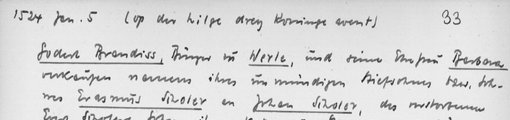 1524 Jan. 5 (op der hilge drey Konninge avent) 33
Godert Brandiss, Bürger zu Werle, und seine Ehefrau Barbara
verkaufen namens ihres unmündigen Stiefsohnes bzw. Soh-
nes Erasmus Scholer an Johan Scholer, des verstorbenen